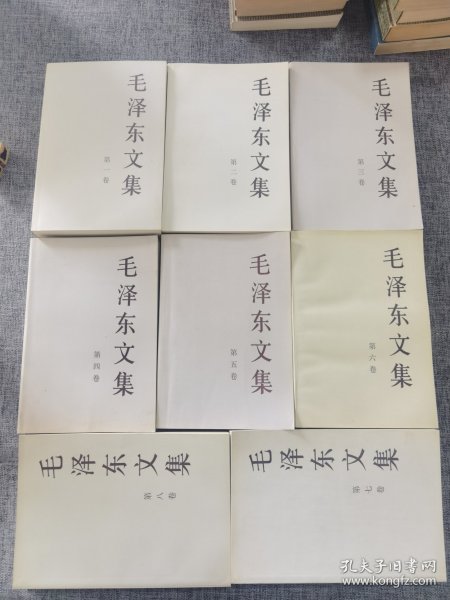 毛泽东文集
第一卷
毛泽东文集
第二卷
毛泽东文集
第三卷
毛泽东文集
第四卷
毛泽东文集
第五卷
毛泽东文集
第六卷
毛泽东文集
第八卷
毛泽东文集
第七卷
孔夫子旧书网
www.kongfz.com